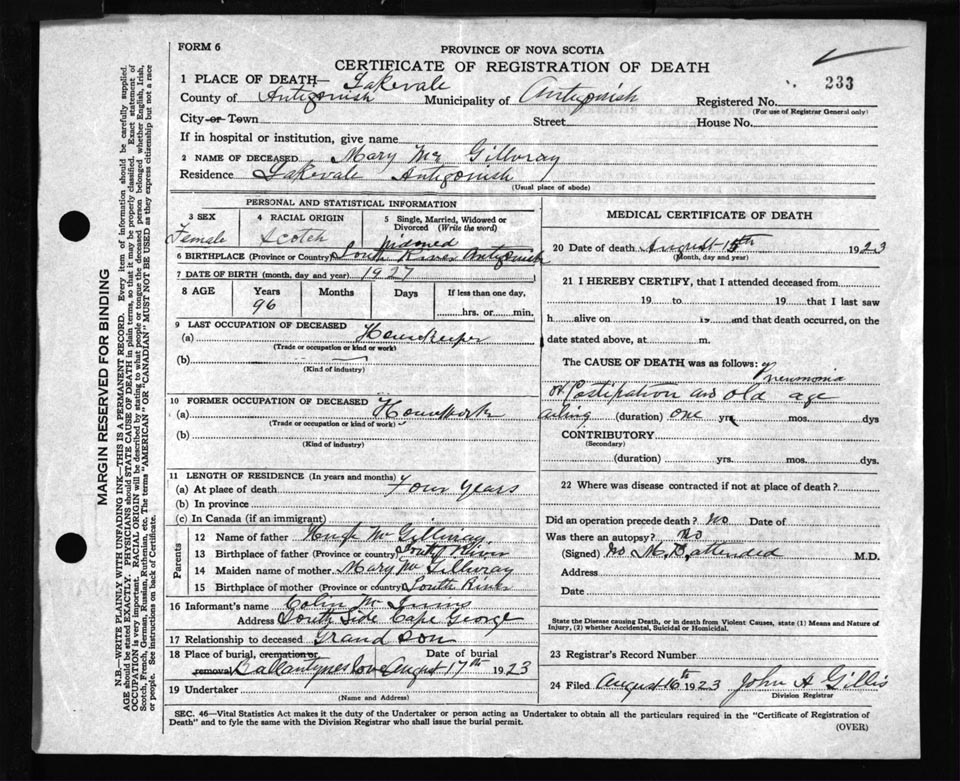 FORM 6
PROVINCE OF NOVA SCOTIA
CERTIFICATE OF REGISTRATION OF DEATH
233
1 PLACE OF DEATH— Lakevale
County of Antigonish Municipality of Antigonish Registered No.
(For use of Registrar General only)
City or Town Street House No.
If in hospital or institution, give name
2 NAME OF DECEASED Mary Mc Gillvray
Residence Lakevale Antigonish
(Usual place of abode)
PERSONAL AND STATISTICAL INFORMATION
3 SEX 4 RACIAL ORIGIN 5 Single, Married, Widowed or Divorced (Write the word)
Female Scotch widowed
6 BIRTHPLACE (Province or Country) South River Antigonish
7 DATE OF BIRTH (month, day and year) 1927
8 AGE Years Months Days If less than one day,
96 hrs. or min.
9 LAST OCCUPATION OF DECEASED
(a) Housekeeper
(Trade or occupation or kind or work)
(b)
(Kind of industry)
10 FORMER OCCUPATION OF DECEASED
(a) Housework
(Trade or occupation or kind of work)
(b)
(Kind of industry)
11 LENGTH OF RESIDENCE (In years and months)
(a) At place of death Four years
(b) In province
(c) In Canada (if an immigrant)
Parents
12 Name of father Hugh Mc Gillivray
13 Birthplace of father (Province or country) South River
14 Maiden name of mother Mary Mc Gillvray
15 Birthplace of mother (Province or country) South River
16 Informant's name Colin Mc
Address South Side Cape George
17 Relationship to deceased Grand son
18 Place of burial, cremation or removal Date of burial
Ballantynes Cove August 17th 1923
19 Undertaker
(Name and Address)
MEDICAL CERTIFICATE OF DEATH
20 Date of death August 15th 1923
(Month, day and year)
21 I HEREBY CERTIFY, that I attended deceased from
19 to 19 that I last saw
h alive on 19 and that death occurred, on the
date stated above, at m.
The CAUSE OF DEATH was as follows: Pneumonia
old age
ailing (duration) one yrs. mos. dys
CONTRIBUTORY
(Secondary)
(duration) yrs. mos. dys.
22 Where was disease contracted if not at place of death?
Did an operation precede death? No Date of
Was there an autopsy? No
(Signed) No M.D. attended M.D.
Address
Date
State the Disease causing Death, or in death from Violent Causes, state (1) Means and Nature of
Injury, (2) whether Accidental, Suicidal or Homicidal.
23 Registrar's Record Number
24 Filed August 16th 1923 John A Gillis
Division Registrar
SEC. 46—Vital Statistics Act makes it the duty of the Undertaker or person acting as Undertaker to obtain all the particulars required in the "Certificate of Registration of
Death" and to fyle the same with the Division Registrar who shall issue the burial permit.
(OVER)
MARGIN RESERVED FOR BINDING
N.B.—WRITE PLAINLY WITH UNFADING INK—THIS IS A PERMANENT RECORD. Every item of information should be carefully supplied.
AGE should be stated EXACTLY. PHYSICIANS should STATE CAUSE OF DEATH in plain terms, so that it may be properly classified. Exact statement of
OCCUPATION is very important. RACIAL ORIGIN will be described by stating to what people or tongue the deceased person belonged whether English, Irish,
Scotch, French, German, Russian, Ruthenian, etc. The terms "AMERICAN" OR "CANADIAN" MUST NOT BE USED as they express citizenship but not a race
or people. See instructions on back of Certificate.